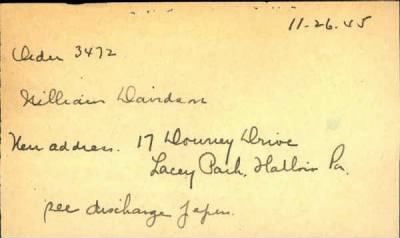 11-26.45
Order 3472
William Davidson
New address. 17 Downey Drive
Lacey Park, Hatboro Pa.
per discharge papers.